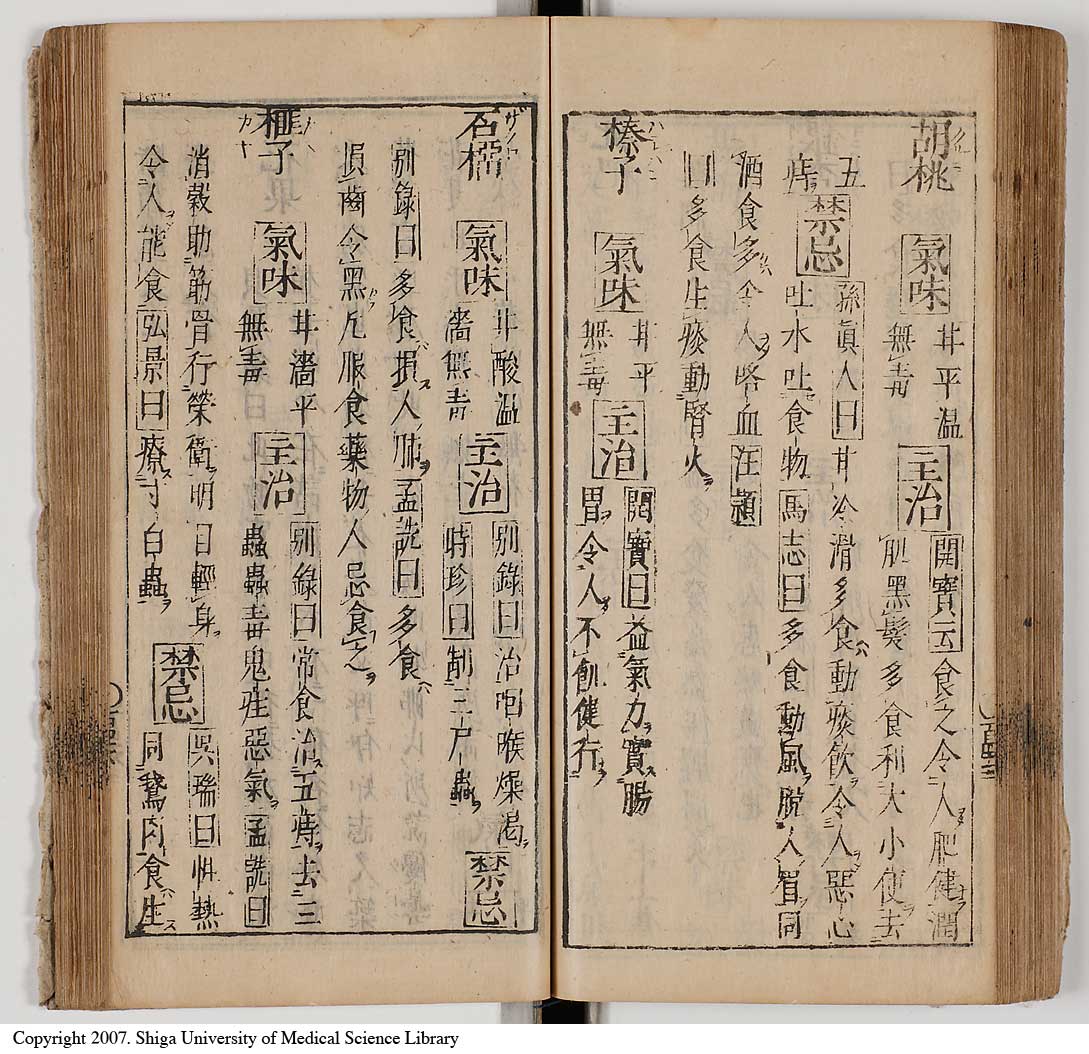 胡桃 氣味 甘平温無毒 主治 開寶云食之令人肥健潤肌黑髮多食利大小便去
五痔 禁忌 孫眞人曰甘冷滑多食動痰飲令人惡心
吐水吐食物馬志曰多食動風脫人眉同
酒食多令人咯血汪頴
曰多食生痰動腎火
榛子 氣味 甘平無毒 主治 開寶曰益氣力實腸胃令人不飢健行
石榴 氣味 甘酸温濇無毒 主治 別錄曰治咽喉燥渴時珍曰制三尸蟲 禁忌
別錄曰多食損人肺孟詵曰多食
損齒令黑凡服食藥物人忌食之
榧子 氣味 甘濇平無毒 主治 別錄曰常食治五痔去三蟲蟲毒鬼疰惡氣孟詵曰
消穀助筋骨行榮衛明目輕身
令人能食弘景曰療寸白蟲 禁忌 吳瑞曰性熱同鵞肉食生
Copyright 2007. Shiga University of Medical Science Library